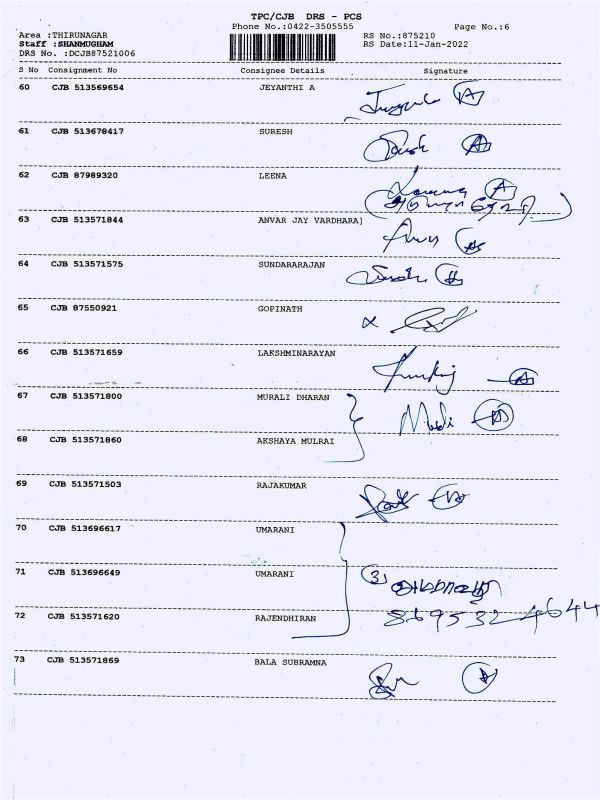 TPC/CJB DRS - PCS
Phone No.:0422-3505555 Page No.:6
Area :THIRUNAGAR RS No.:875210
Staff :SHANMUGHAM RS Date:11-Jan-2022
DRS No. :DCJB87521006
S No Consignment No Consignee Details Signature
60 CJB 513569654 JEYANTHI A
61 CJB 513678417 SURESH
62 CJB 87989320 LEENA
63 CJB 513571844 ANVAR JAY VARDHARAJ
64 CJB 513571575 SUNDARARAJAN
65 CJB 87550921 GOPINATH
66 CJB 513571659 LAKSHMINARAYAN
67 CJB 513571800 MURALI DHARAN
68 CJB 513571860 AKSHAYA MULRAI
69 CJB 513571503 RAJAKUMAR
70 CJB 513696617 UMARANI
71 CJB 513696649 UMARANI 3
72 CJB 513571620 RAJENDHIRAN 8695324644
73 CJB 513571869 BALA SUBRAMNA